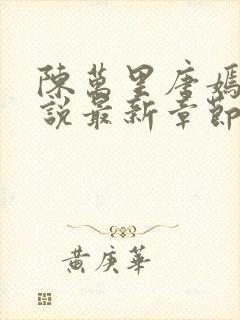 陳萬里唐嫣
說最新章節
黃庚華